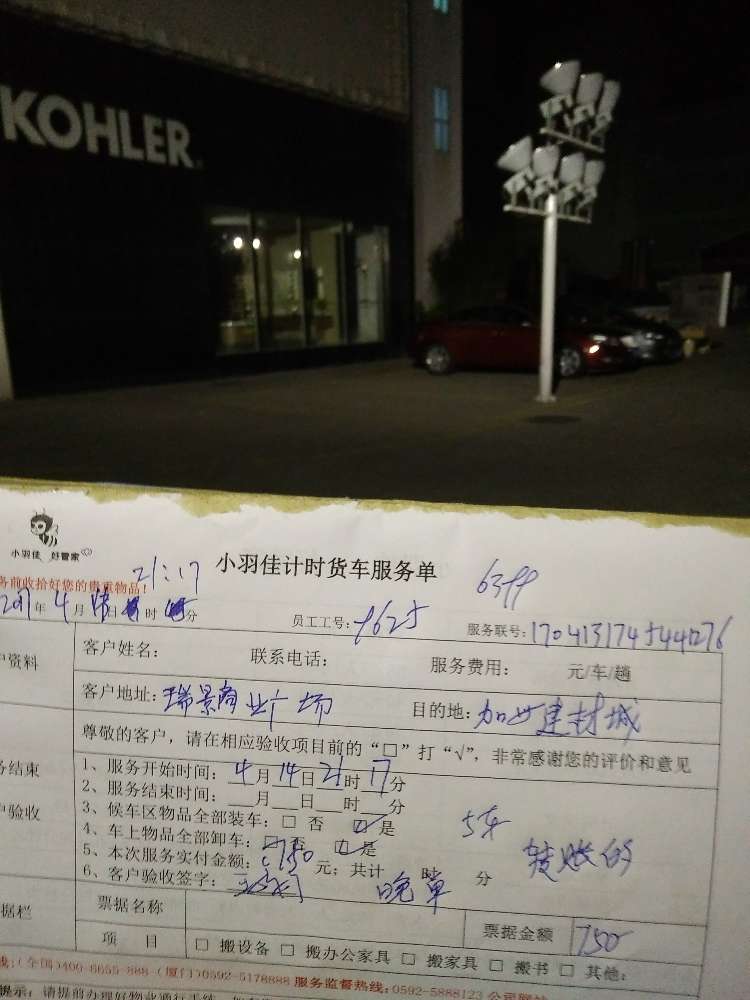 KOHLER
小羽佳 好管家
21:17
小羽佳计时货车服务单
务前收拾好您的贵重物品!
年 4 月 日 时 分 员工工号: 9625 服务联号:
户资料
客户姓名: 联系电话: 服务费用: 元/车/趟
客户地址: 瑞景商业广场 目的地: 加州建材城
尊敬的客户，请在相应验收项目前的“□”打“√”，非常感谢您的评价和意见
务结束
户验收
1、服务开始时间: 4月14日21时17分
2、服务结束时间: __月__日__时__分
3、候车区物品全部装车: □ 否 ☑ 是 5车
4、车上物品全部卸车: □ 否 ☑ 是 转账的
5、本次服务实付金额: 750 元; 共计 时 分
6、客户验收签字: 晚单
据栏
票据名称 票据金额 750
项 目 □ 搬设备 □ 搬办公家具 □ 搬家具 □ 搬书 □ 其他:
线:(全国)400-6655-888 (厦门)0592-5178888 服务监督热线:0592-5888123 公司网站
提示: 请提前办理好物业通行手续